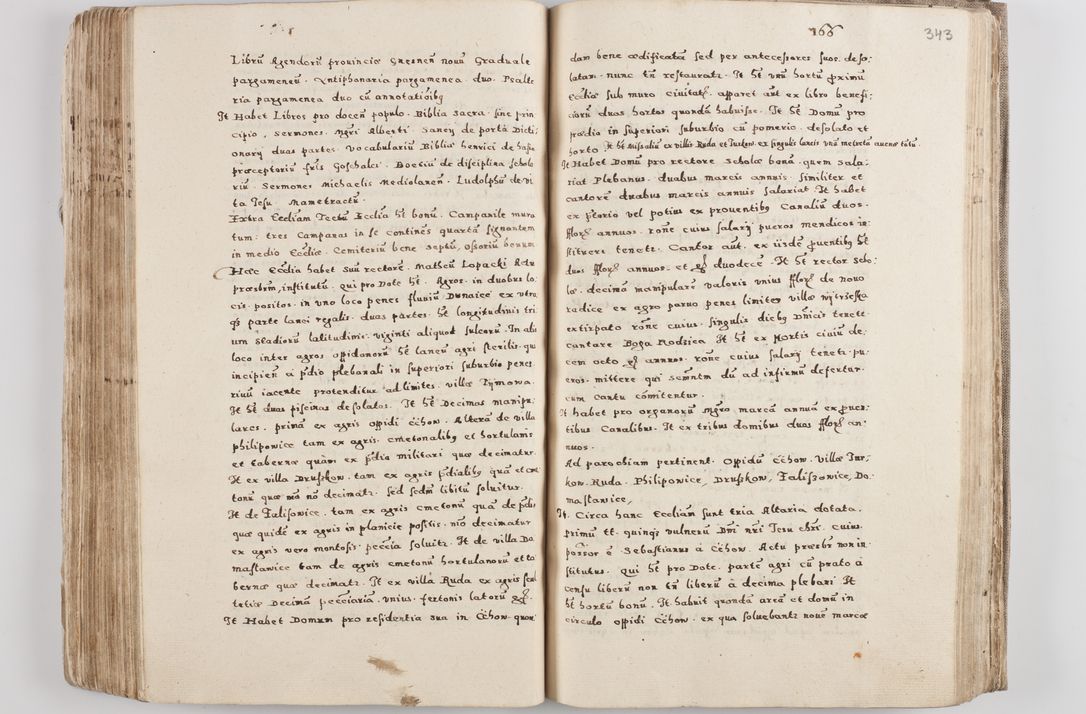 Librū Agendorū provinciæ Gnesneñ novū Graduale
pargameneū. Antiphonaria pargamenea duo. Psalte
ria pargamenea duo cū annotatióibꝫ
It Habet Libros pro doceñ populo. Biblia sacra sine prin
cipio, sermones Mgri Alberti. Sancy de porta Dicti:
onarÿ duas partes. Vocabulariū Bibliæ henrici de hasia
præceptoriū fris Goschalci. Boetiū de disciplina schola
riū. Sermones Michaelis Mediolaneñ. Ludolphū de vi
ta Jesu. Mametractū.
Extra Eccliam Tectū Ecclia hēt bonū. Campanile mura
tum. tres Campanas in se continēs quartā signantem
in medio Eccliæ. Cemiteriū bene septū, ossoriū bonum
Hæc Ecclia habet suū rectorē. Matheū Lopacki Actu
præsbrm, institutū. qui pro Dote hēt. Agros. in duobus lo:
cis. positos. in uno loco penes fluviū Dunaiec ex utra
qꝫ parte lanei regalis. duas partes. hēt longitudinis tri
um stadiorū latitudinis. viginti aliquot sulcorū. In alio
loco inter agros oppidanorū hēt laneū agri sterilis. qui
incipieñ a pdio plebanali in superiori suburbio penes
rivū iacente protenditur ad limites villæ Tymowa.
It hēt duas piscinas desolatas. It hēt Decimas manipu:
lares. primā ex agris oppidi Cchow. Alterā de villa
philipowice tam ex agris. cmetonalibꝫ et hortulanis
et tabernæ quàm ex pdio militari quæ decimatur.
It ex villa Druszkow. tam ex agris pdialibꝫ quā et cme
tonū quæ nō decimatz. sed secdm libitū solvitur.
It de Faliszowice. tam ex agris cmetonū quā de pdio
quæ quidē ex agris in planicie positis. nō decimatur
ex agris vero montosis. pecēia solvitz. It de villa Do
maslawice tam de agris cmetonū hortulanorū et ta
bernæ quæ decimatz. It ex villa Ruda ex agris scul
tetiæ Decimā pecciariā. unius. fertonis latorū
It Habet Domum pro residentia sua in Cchow. quon
166
343
dam bene ædificatā sed per antecessores suos. deso:
latan. nunc tñ restauratz. It hēt unū hortū primū
Eccliæ sub muro civitatꝫ. apparet aūt ex libro benefi:
ciorū duos hortos quondā habuisse. It hēt Domū pro
prædio in superiori suburbio cū pomerio. desolato et
horto It hēt Missaliū ex villis Ruda et Jurkow. ex singulis laneis unā metretā avenæ totū.
It Habet Domū pro rectore scholæ bonā. quem sala:
riat Plebanus. duabus marcis annuis. Similiter et
cantorē duabus marcis annuis salariat. It habet
ex vel potius ex proventibꝫ Canaliū duos.
flor annuos. rōne cuius salarÿ pueros mendicos in:
stituere tenetz. Cantor aūt. ex iisdē proventibꝫ hēt
duos flor annuos. et gr duodecē. It hēt rector scho:
læ. decimā manipularē valoris unius flor de novo
radice ex agro parvo penes limites villæ
extirpato rōne cuius. singulis diebꝫ Dnicis tenetz
cantare Boga Rodzica It hēt ex Mortis civiū de:
cem octo gr annuos. rōne cuius salarÿ tenetz. pu:
eros. mittere qui dū ad infirmū defertur.
cum cantu comitentur.
It habet pro organorū mgro marcā annuā ex proven:
tibus Canalibus. It ex tribus domibus duas flor an:
nuos.
Ad parochiam pertinent. Oppidū Cchow. villæ Jur:
kow. Ruda. Philipowice, Druszkow, Faliszowice, Do:
maslawice,
It. Circa hanc Eccliam sunt tria Altaria dotata.
primū tt. quinqꝫ vulnerū Dni nri Jesu chri. cuius.
possor ē Sebastianus à Cchow. Actu præsbr non in
stitutus. qui hēt pro Dote. partē agri cū prato à
censu liberū non tñ liberū à decima plebani It
hēt hortū bonū. It habuit quondā areā et domū in
circulo oppidi Cchow. ex qua solvebantz novē marcæ